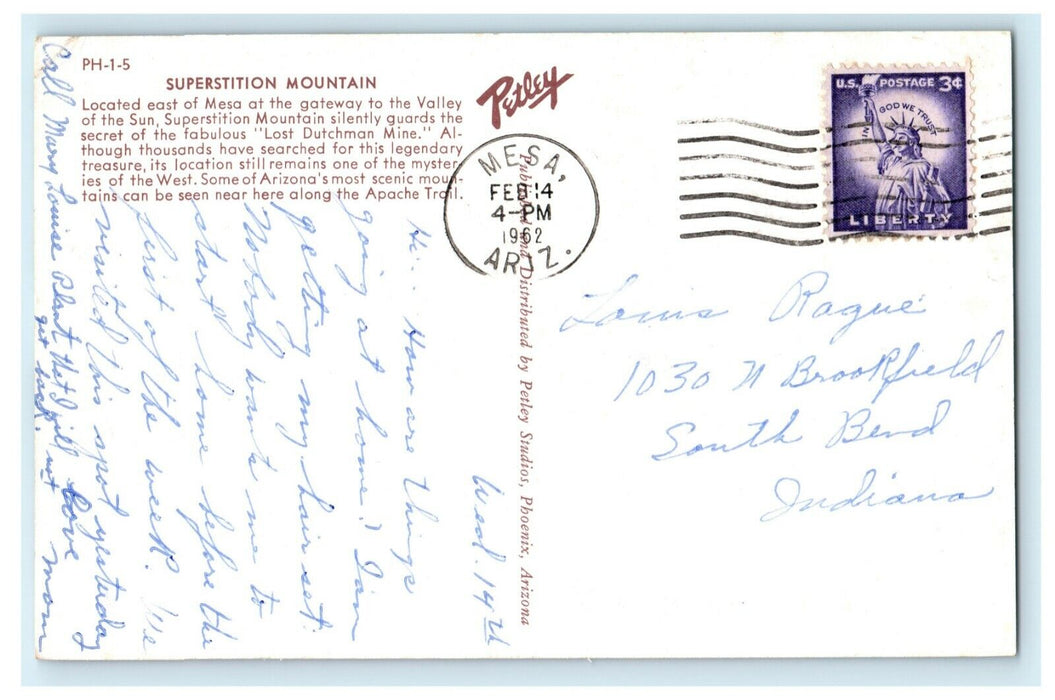 PH-1-5
SUPERSTITION MOUNTAIN
Located east of Mesa at the gateway to the Valley
of the Sun, Superstition Mountain silently guards the
secret of the fabulous "Lost Dutchman Mine." Al-
though thousands have searched for this legendary
treasure, its location still remains one of the myster-
ies of the West. Some of Arizona's most scenic moun-
tains can be seen near here along the Apache Trail.
Petley
Published and Distributed by Petley Studios, Phoenix, Arizona
MESA,
FEB 14
4-PM
1962
ARIZ.
U.S. POSTAGE 3¢
IN GOD WE TRUST
LIBERTY
Wed. 14th
Hi.. How are things
going at home? I am
getting my hair set.
Nobody wants me to
start home before the
first of the week. We
visited this spot yesterday
Love
Mom
Call Mary Louise Plant that I will not
get back.
Louis Rague
1030 N Brookfield
South Bend
Indiana